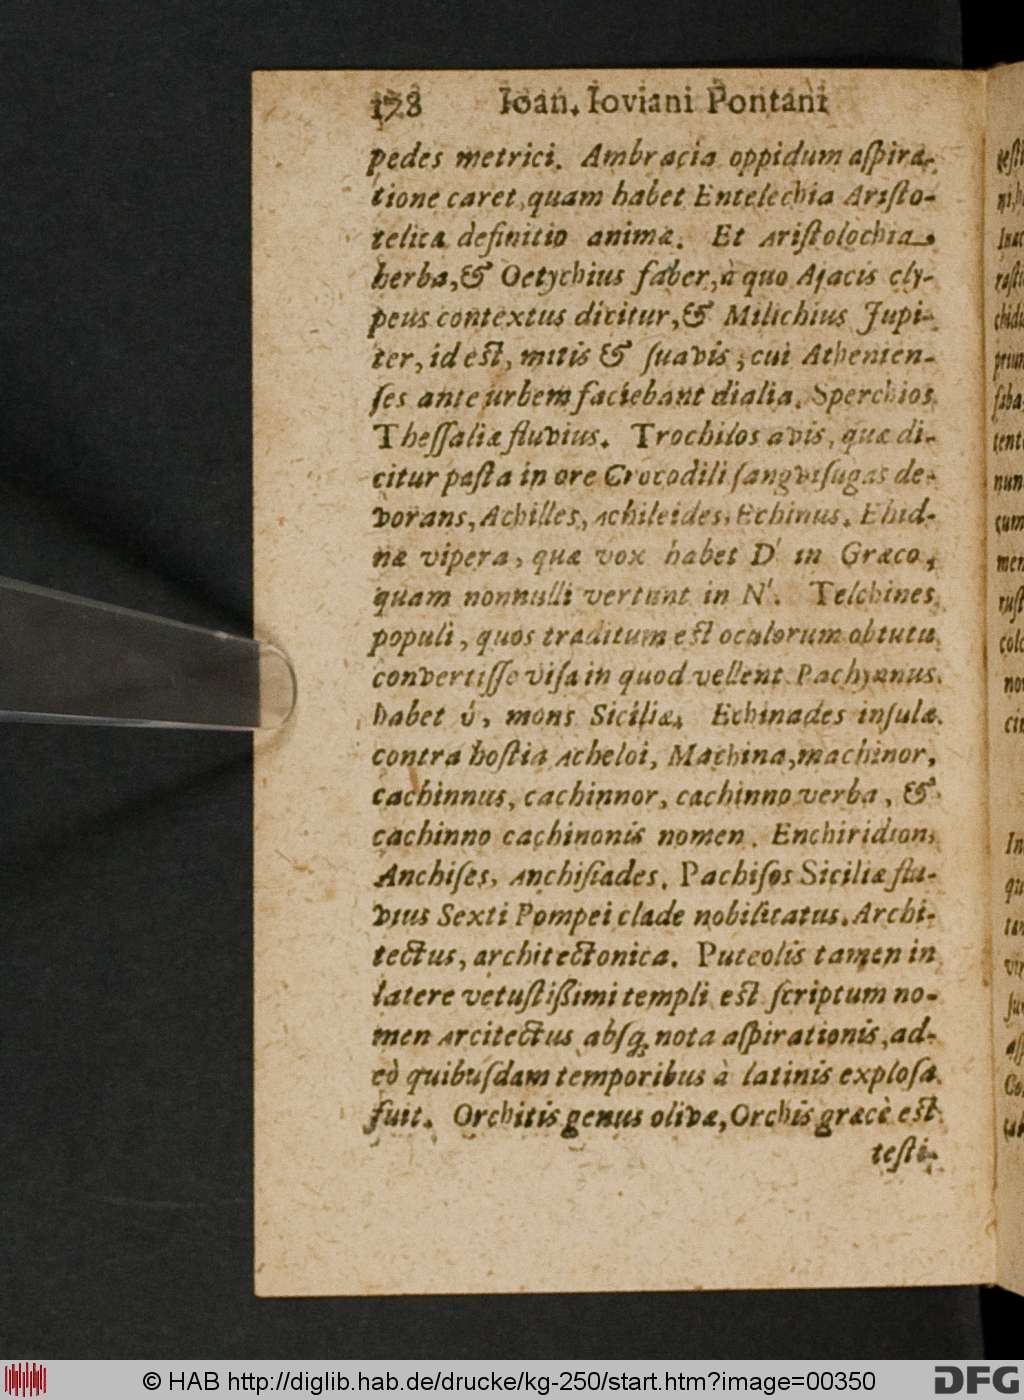 178 Ioan. Ioviani Pontani
pedes metrici. Ambracia oppidum aſpira-
tione caret, quam habet Entelechia Ariſto-
telica definitio animæ. Et Ariſtolochia
herba, & Oetychius faber, à quo Ajacis cly-
peus contextus dicitur, & Milichius Jupi-
ter, id eſt, mitis & ſuavis, cui Athenien-
ſes ante urbem faciebant dialia. Sperchios
Theſſaliæ fluvius. Trochilos avis, quæ di-
citur paſta in ore Crocodili ſangviſugas de-
vorans, Achilles, Achileides, Echinus. Ehid-
næ vipera, quæ vox habet D' in Græco,
quam nonnulli vertunt in N'. Telchines
populi, quos traditum eſt oculorum obtutu
convertiſſe viſa in quod vellent. Pachynnus
habet ύ, mons Siciliæ, Echinades inſulæ
contra hoſtia Acheloi, Machina, machinor,
cachinnus, cachinnor, cachinno verba, &
cachinno cachinonis nomen. Enchiridion,
Anchiſes, Anchiſiades. Pachiſos Siciliæ flu-
vius Sexti Pompei clade nobilitatus. Archi-
tectus, architectonica. Puteolis tamen in
latere vetuſtißimi templi eſt ſcriptum no-
men Arcitectus abſq; nota aſpirationis, ad-
eò quibuſdam temporibus à latinis exploſa
fuit. Orchitis genus olivæ, Orchis græcè eſt
teſti-
© HAB http://diglib.hab.de/drucke/kg-250/start.htm?image=00350
DFG